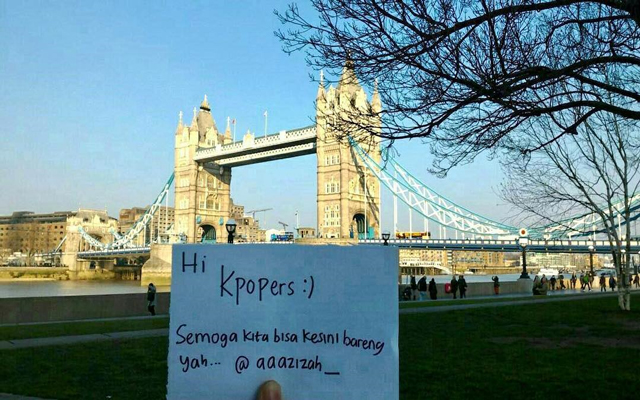 Hi
Kpopers :)
Semoga kita bisa kesini bareng
yah... @aaazizah_